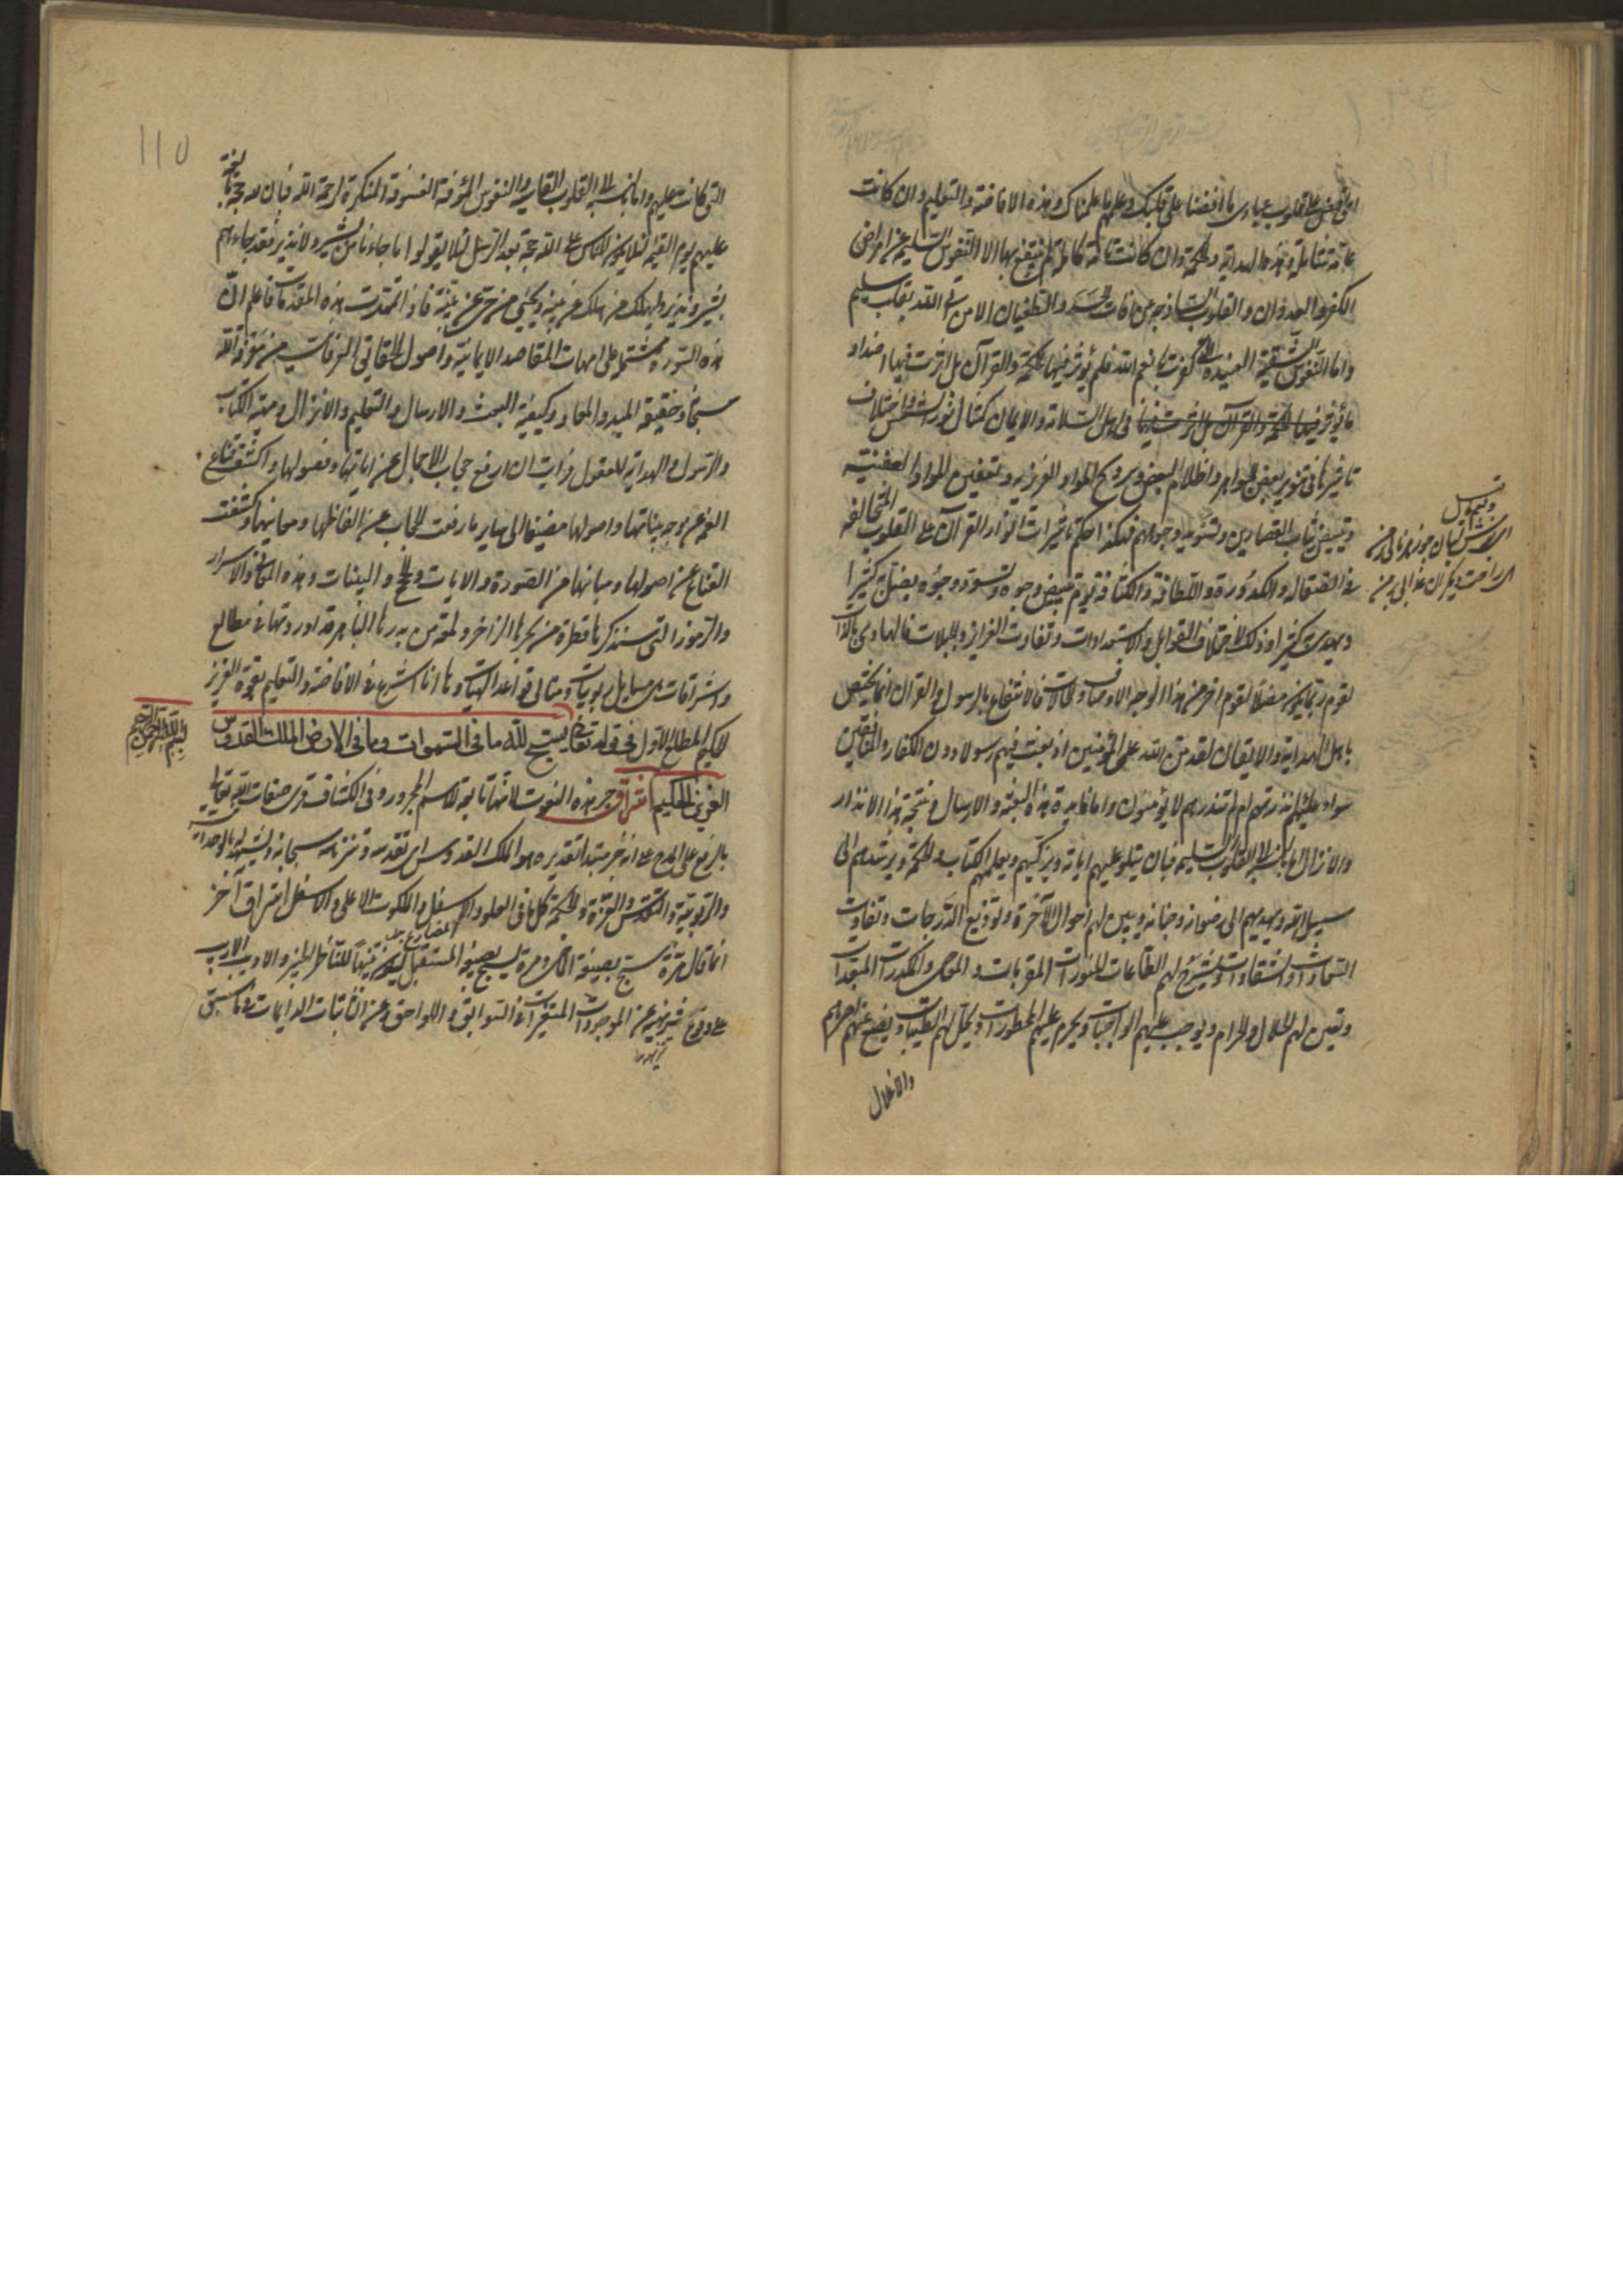 افيض على قلوب عبادي ما افضنا على قلبك وعلمهم ما علمناك وهذه الافاضة والتعليم وان كانت
عامة شاملة وهذه الهداية والحكمة وان كانت تامة كاملة لم ينتفع بها الا النفوس السليمة عن امراض
الكفر والعدوان والقلوب الساذجة عن افات الحسد والطغيان الا من اتى الله بقلب سليم
واما النفوس الشقية العنيدة التي كفرت بانعم الله فلم يؤثر فيها الحكمة والقرآن بل اثرت فيها اضداد
ما يؤثر فيها الحكمة والقرآن بل اثرت فينا في اهل السلامة والايمان كمثال نور الشمس واختلاف
تاثيرها في تنوير بعض الجواهر واظلام البعض وترويح المواد الغريزية وتعفين المواد العفنية
وتبييض ثياب القصارين وتسويد وجوههم فهكذا حكم تاثيرات انوار القرآن على القلوب المتخالفة
في الصقالة والكدورة واللطافة والكثافة يوم تبيض وجوه وتسود وجوه يضل به كثيرا
ويهدي به كثيرا وذلك لاختلاف القوابل والاستعدادات وتفاوت الغرايز والجبلات فالهادي بالذات
لقوم ربما يكون مضلا لقوم اخر من هذا الوجه الاوصاف والحالات فالانتفاع بالرسول والقرآن انما يختص
باهل الهداية والايقان لقد من الله على المؤمنين اذ بعث فيهم رسولا دون الكفار والمنافقين
سواء عليهم ءانذرتهم ام لم تنذرهم لا يؤمنون واما فايدة هذه البعثة والارسال ونتيجة هذا الانذار
والانزال اما بالنسبة الى القلوب السليمة فبان يتلو عليهم اياته ويزكيهم ويعلمهم الكتاب والحكمة ويرشدهم الى
سبيل الله ويهديهم الى رضوانه وجنانه ويبين لهم احوال الآخرة وتوزيع الدرجات وتفاوت
السعادات والشقاوات ويشرح لهم الطاعات المنورات المقربات والمعاصي والمكدرات المبعدات
ويعين لهم الحلال والحرام ويوجب عليهم الواجبات ويحرم عليهم المحظورات ويحل لهم الطيبات ويضع عنهم اصرهم
والاغلال
التي كانت عليهم واما بالنسبة الى القلوب القاسية والنفوس المؤفة الفسوقة المنكرة لرحمة الله فبان لله حجة بالغة
عليهم يوم القيمة لئلا يكون للناس على الله حجة بعد الرسل لئلا يقولوا ما جاءنا من بشير ولا نذير فقد جاءهم
بشير ونذير وليهلك من هلك عن بينة ويحيى من حي عن بينة فاذا تمهدت هذه المقدمات فاعلم ان
هذه السورة مشتملة على امهات المقاصد الايمانية واصول الحقائق العرفانية من معرفة الله
سبحانه وحقيقة المبدء والمعاد وكيفية البعث والارسال والتعليم والانزال ومهية الكتاب
والرسول والهداية للعقول فرايت ان ارفع حجاب الاجمال عن اياتها وفصولها واكشف قناع
الغموض عن وجه بيناتها واصولها مضيفا الى ساير ما رفعت الحجاب عن الفاظها ومعانيها وكشفت
القناع عن اصولها ومبانيها من الصورة والايات والحجج والبينات وهذه المعاني والاسرار
والرموز التي سنذكرها قطرة من بحرها الزاخر ولمعة من بدرها الباهر قد اوردتها في مطالع
واشراقات هي مسايل ربوبيات ومثاني قواعد الهيات وها انا اشرع في الافاضة والتعليم بقوة العزيز
الحكيم المطلع الاول في قوله تعالى يسبح لله ما في السموات وما في الارض الملك القدوس
بسم الله الرحمن الرحيم
العزيز الحكيم اشراق جر هذه النعوت لانها تابعة للاسم المجرور وفي الكشاف قرئ صفات الله تعالى
بالرفع على المدح على انه خبر مبتدا تقديره هو الملك القدوس اي تقدسه وتنزهه سبحانه ويشهد له بالوحدانية
والربوبية والتقدس والعزة والحكمة كل ما في العلو والاسفل والملكوت الاعلى والاسفل اشراق آخر
انما قال مرة سبح بصيغة الماضي ومرة يسبح بصيغة المستقبل ليكون تنبيها للناظر الخبير والاديب الاريب
على وقوع تنزيهه عن الموجودات المتغيرات السوابق واللواحق وعن الثابتات الدايمات فما سبق
١١٥